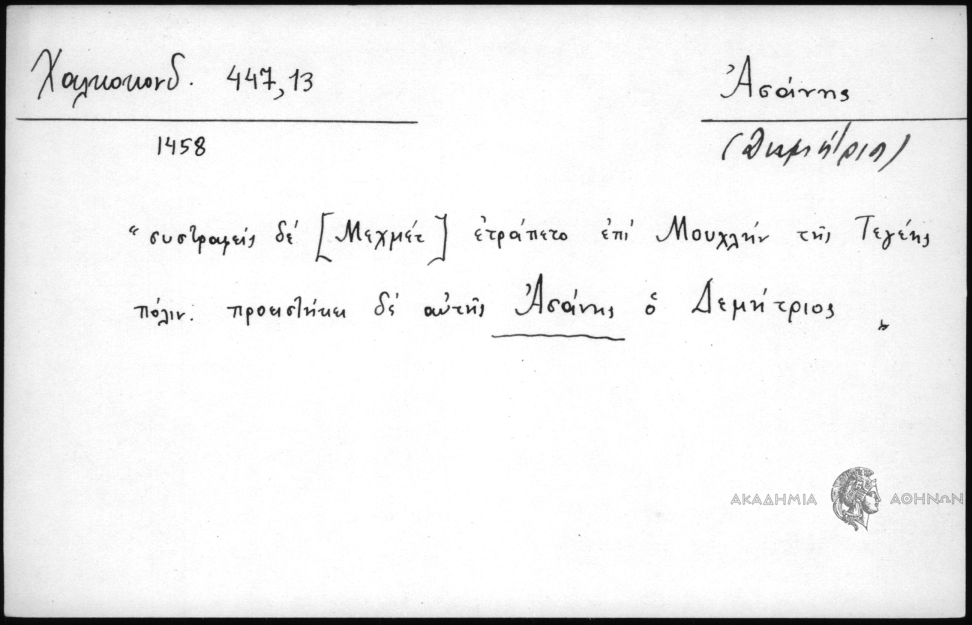 Χαλκοκονδ. 447,13
Ἀσάνης
1458
(Δημήτριος)
“συστραφείς δέ [Μεχμέτ] ἐτράπετο ἐπί Μουχλήν τῆς Τεγέης
πόλιν. προειστήκει δέ αὐτῆς Ἀσάνης ὁ Δεμήτριος „
ΑΚΑΔΗΜΙΑ ΑΘΗΝΩΝ